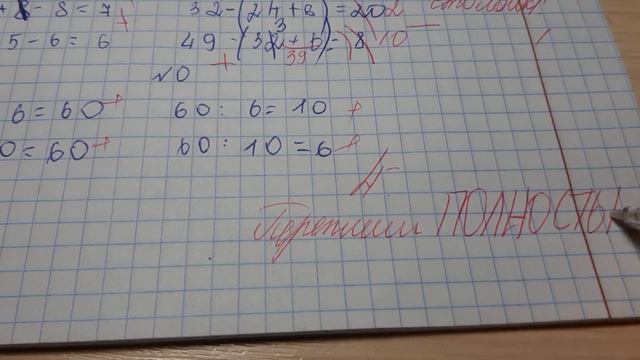 - 8 = 7 + 32-(24+8)=20 2 столбик
5-6=6 49-(32+6)= 8 10
39
№0
6=60 + 60: 6=10 +
0=60 + 60: 10=6 +
4-
Перепиши ПОЛНОСТЬЮ